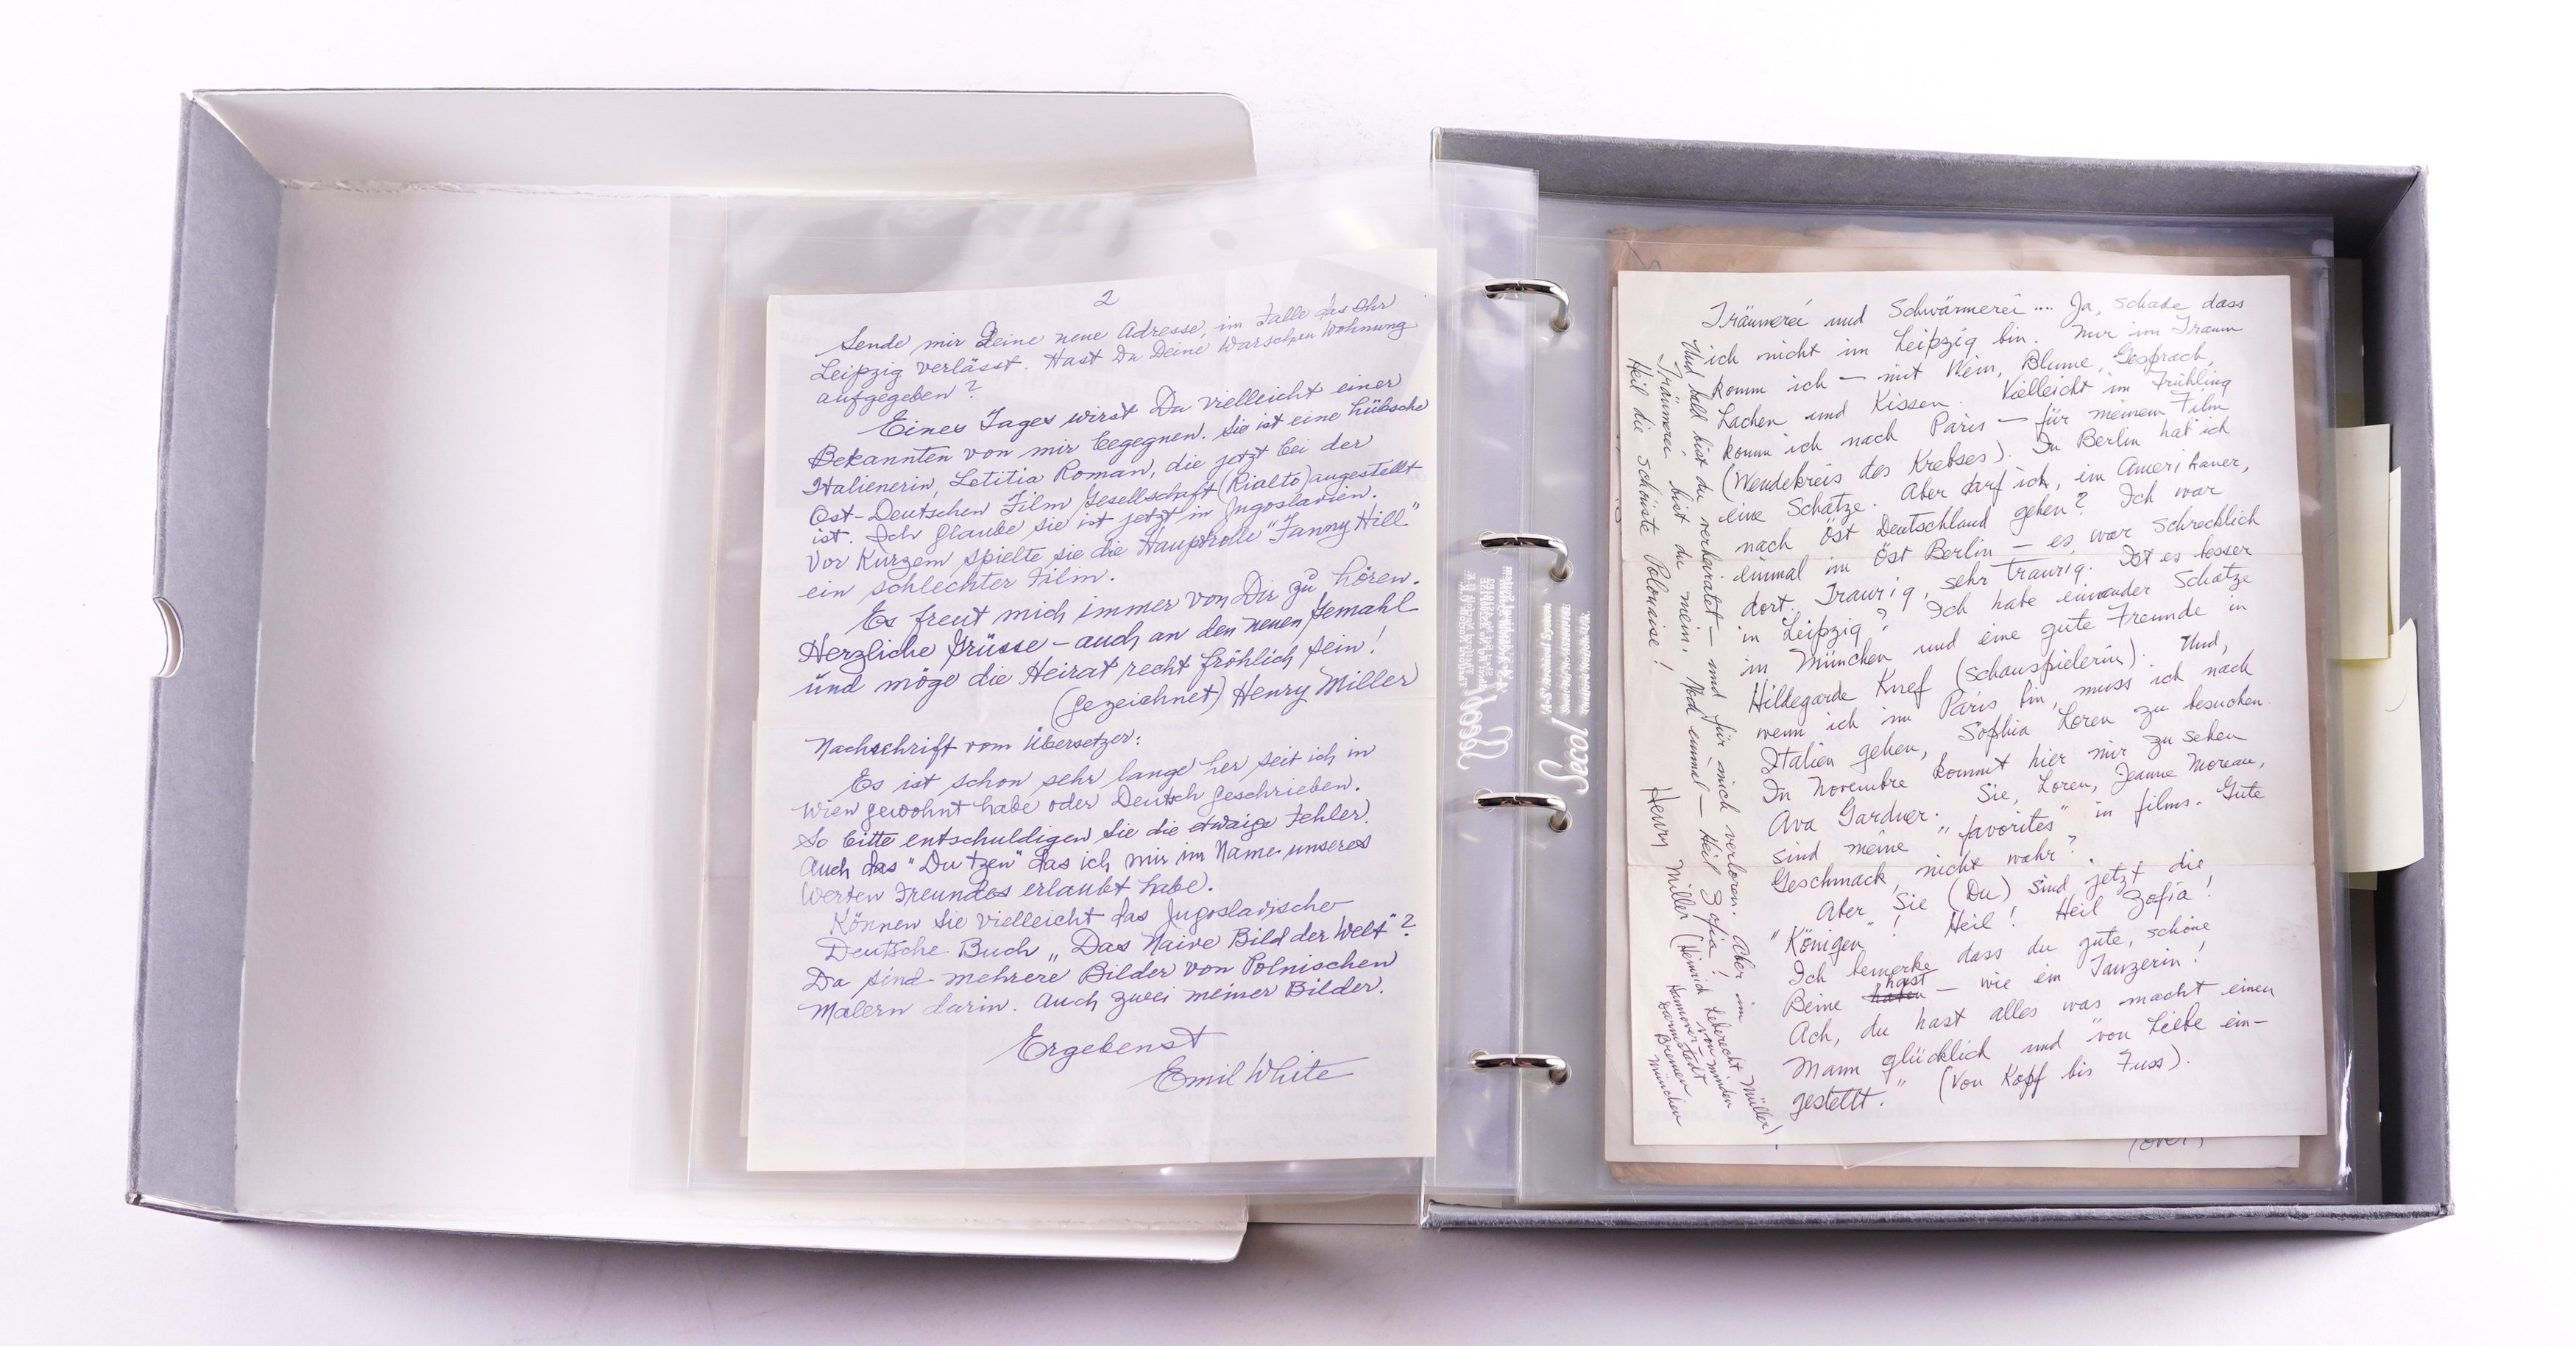 2
Sende mir Deine neue Adresse, im Falle das Ihr
Leipzig verlässt. Hast Du Deine Warschau Wohnung
aufgegeben?
Eines Tages wirst Du vielleicht einer
Bekannten von mir begegnen. Sie ist eine hübsche
Italienerin, Letitia Roman, die jetzt bei der
Ost-Deutschen Film Gesellschaft (Rialto) angestellt
ist. Ich glaube sie ist jetzt in Jugoslavien.
Vor Kurzem spielte sie die Hauptrolle "Fanny Hill"
ein schlechter Film.
Es freut mich immer von Dir zu hören.
Herzliche Grüsse - auch an den neuen Gemahl
und möge die Heirat recht fröhlich sein!
(gezeichnet) Henry Miller
Nachschrift vom Übersetzer:
Es ist schon sehr lange her seit ich in
Wien gewohnt habe oder Deutsch geschrieben.
So bitte entschuldigen Sie die etwaige Fehler.
Auch das "Du tzen" das ich mir im Name unseres
Werten Freundes erlaubt habe.
Können Sie vielleicht das Jugoslavische
Deutsche Buch „Das Naive Bild der Welt"?
Da sind mehrere Bilder von Polnischen
Malern darin. Auch zwei meiner Bilder.
Ergebenst
Emil White
Secol
Secol
Träumerei und Schwärmerei .... Ja, schade dass
ich nicht im Leipzig bin. Nur im Traum
komm ich — mit Wein, Blume, Gesprach,
Lachen und Kissen. Vielleicht im Frühling
komm ich nach Paris — für meinem Film
(Wendekreis des Krebses). In Berlin hat ich
eine Schatze. Aber darf ich, ein Amerikaner,
nach Öst Deutschland gehen? Ich war
einmal in Öst Berlin — es war schrecklich
dort. Traurig, sehr traurig. Ist es besser
in Leipzig? Ich habe Schatze
in München und eine gute Freunde in
Hildegarde Knef (Schauspielerin). Und,
wenn ich in Paris bin, muss ich nach
Italien gehen, Sophia Loren zu besuchen.
In Novembre kommt hier mir zu sehen
Ava Gardner. Sie, Loren, Jeanne Moreau,
sind meine "favorites" in films. Gute
Geschmack, nicht wahr?
Aber Sie (Du) sind jetzt die
"Königen"! Heil! Heil Zofia!
Ich bemerke dass du gute, schöne
Beine hast — wie ein Tanzerin!
Ach, du hast alles was macht einen
Mann glücklich und "von Liebe ein-
gestellt." (Von Kopf bis Fuss).
Und bald bist du verheiratet — und für mich verloren. Aber im
Träumerei bist du mein. Noch einmal — Heil Zofia!
Heil die schönste Polonaise!
Henry Miller (Heinrich Lebrecht Müller)
von Minden
Hannover
Darmstadt
Bremen
München
(over)